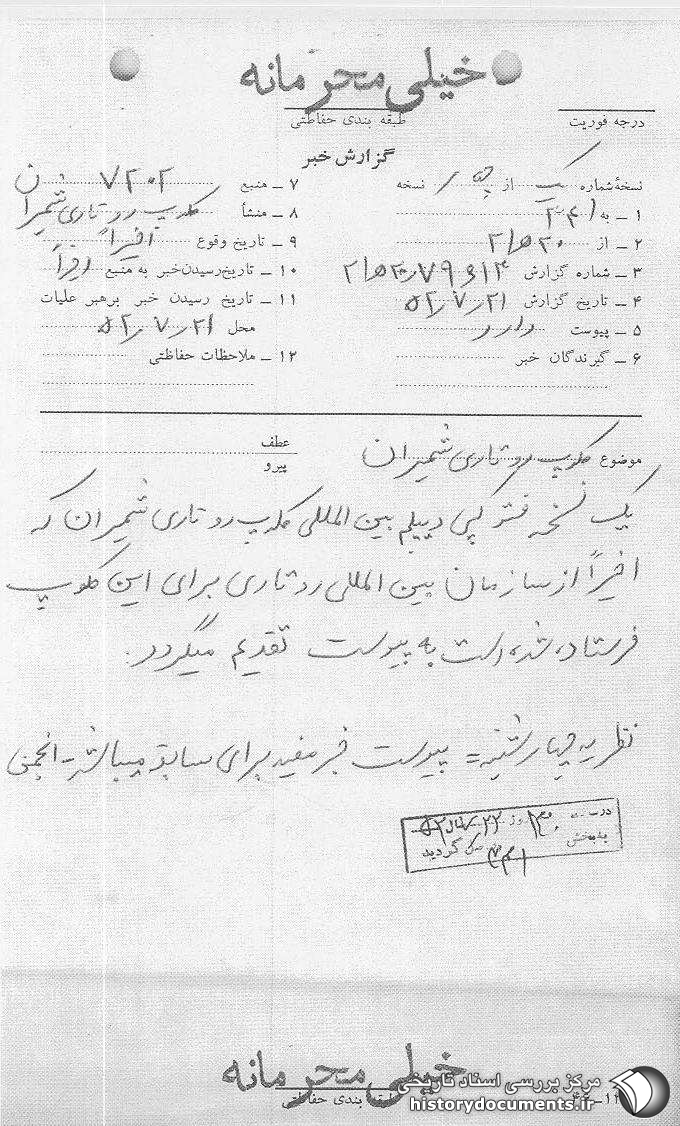 خیلی محرمانه
طبقه بندی حفاظتی
درجه فوریت
گزارش خبر
نسخهٔ شماره یک از نسخه
۱ ـ به ۳۴۱
۲ ـ از ۲۰ ه ۳
۳ ـ شماره گزارش
۴ ـ تاریخ گزارش ۵۲/۷/۲۱
۵ ـ پیوست دارد
۶ ـ گیرندگان خبر
۷ ـ منبع ۷۲۰۲
۸ ـ منشأ کلوپ روتاری شمیران
۹ ـ تاریخ وقوع اخیراً
۱۰ ـ تاریخ رسیدن خبر به منبع اخیراً
۱۱ ـ تاریخ رسیدن خبر برهبر عملیات
محل ۵۲/۷/۲۱
۱۲ ـ ملاحظات حفاظتی
موضوع کلوپ روتاری شمیران
عطف
پیرو
یک نسخه فتوکپی دیپلم بین المللی کلوپ روتاری شمیران که
اخیراً از سازمان بین المللی روتاری برای این کلوپ
فرستاده شده است به پیوست تقدیم میگردد.
نظریه چهارشنبه = پیوست خبر مفید برای سابقه میباشد ـ انجمنی
گردید
خیلی محرمانه
طبقه بندی حفاظتی
مرکز بررسی اسناد تاریخی
historydocuments.ir